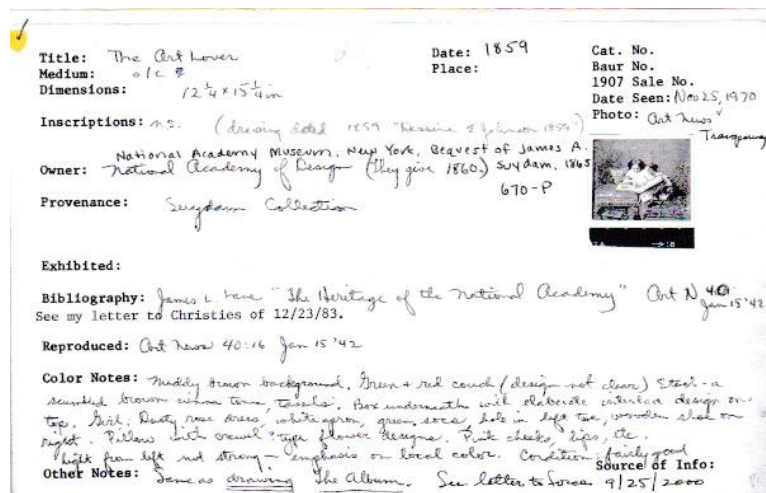 Title: The Art Lover
Date: 1859
Cat. No.
Medium: o/c
Place:
Baur No.
Dimensions: 12 1/4 x 15 1/4 in
1907 Sale No.
Date Seen: Nov 25, 1970
Inscriptions: n.s. (drawing dated 1859 "Dessine E Johnson 1859")
Photo: Art News
Transparency
National Academy Museum, New York, Bequest of James A.
Owner: National Academy of Design (They give 1860.) Suydam, 1865
670-P
Provenance: Suydam Collection
Exhibited:
Bibliography: James L. Lane "The Heritage of the National Academy" Art N 40
Jan 15 '42
See my letter to Christies of 12/23/83.
Reproduced: Art News 40:16 Jan 15 '42
Color Notes: Muddy brown background. Green + red couch (design not clear) - a
scumbled brown sienna tone, tassels. Box underneath with elaborate interlace design on
top. Girl: Dusty rose dress, white apron, green socs, hole in left toe, wooden shoe on
right. Pillow with crewel type flower designs. Pink cheeks, lips, etc.
Light from left not strong - emphasis on local color. Condition: fairly good
Source of Info:
Other Notes: Same as drawing The Album. See letter to 9/25/2000